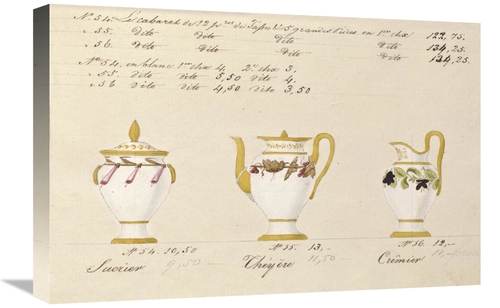 No. 54. Le cabaret de 12 pr. de Tasses & 5 grandes Pièces en 1er chx 122,75.
" 55. Dito Dito Dito Dito 134,25.
" 56. Dito Dito Dito 134,25.
No. 54. en blanc 1er chx 4, 2e. chx 3,
" 55. Dito Dito 5,50 Dito 4.
" 56 Dito Dito 4,50 Dito 3,50
No. 54. 10,50 No. 55. 13,- No. 56. 12,-
Sucrier 9,50 Théyère 11,50 Crêmier